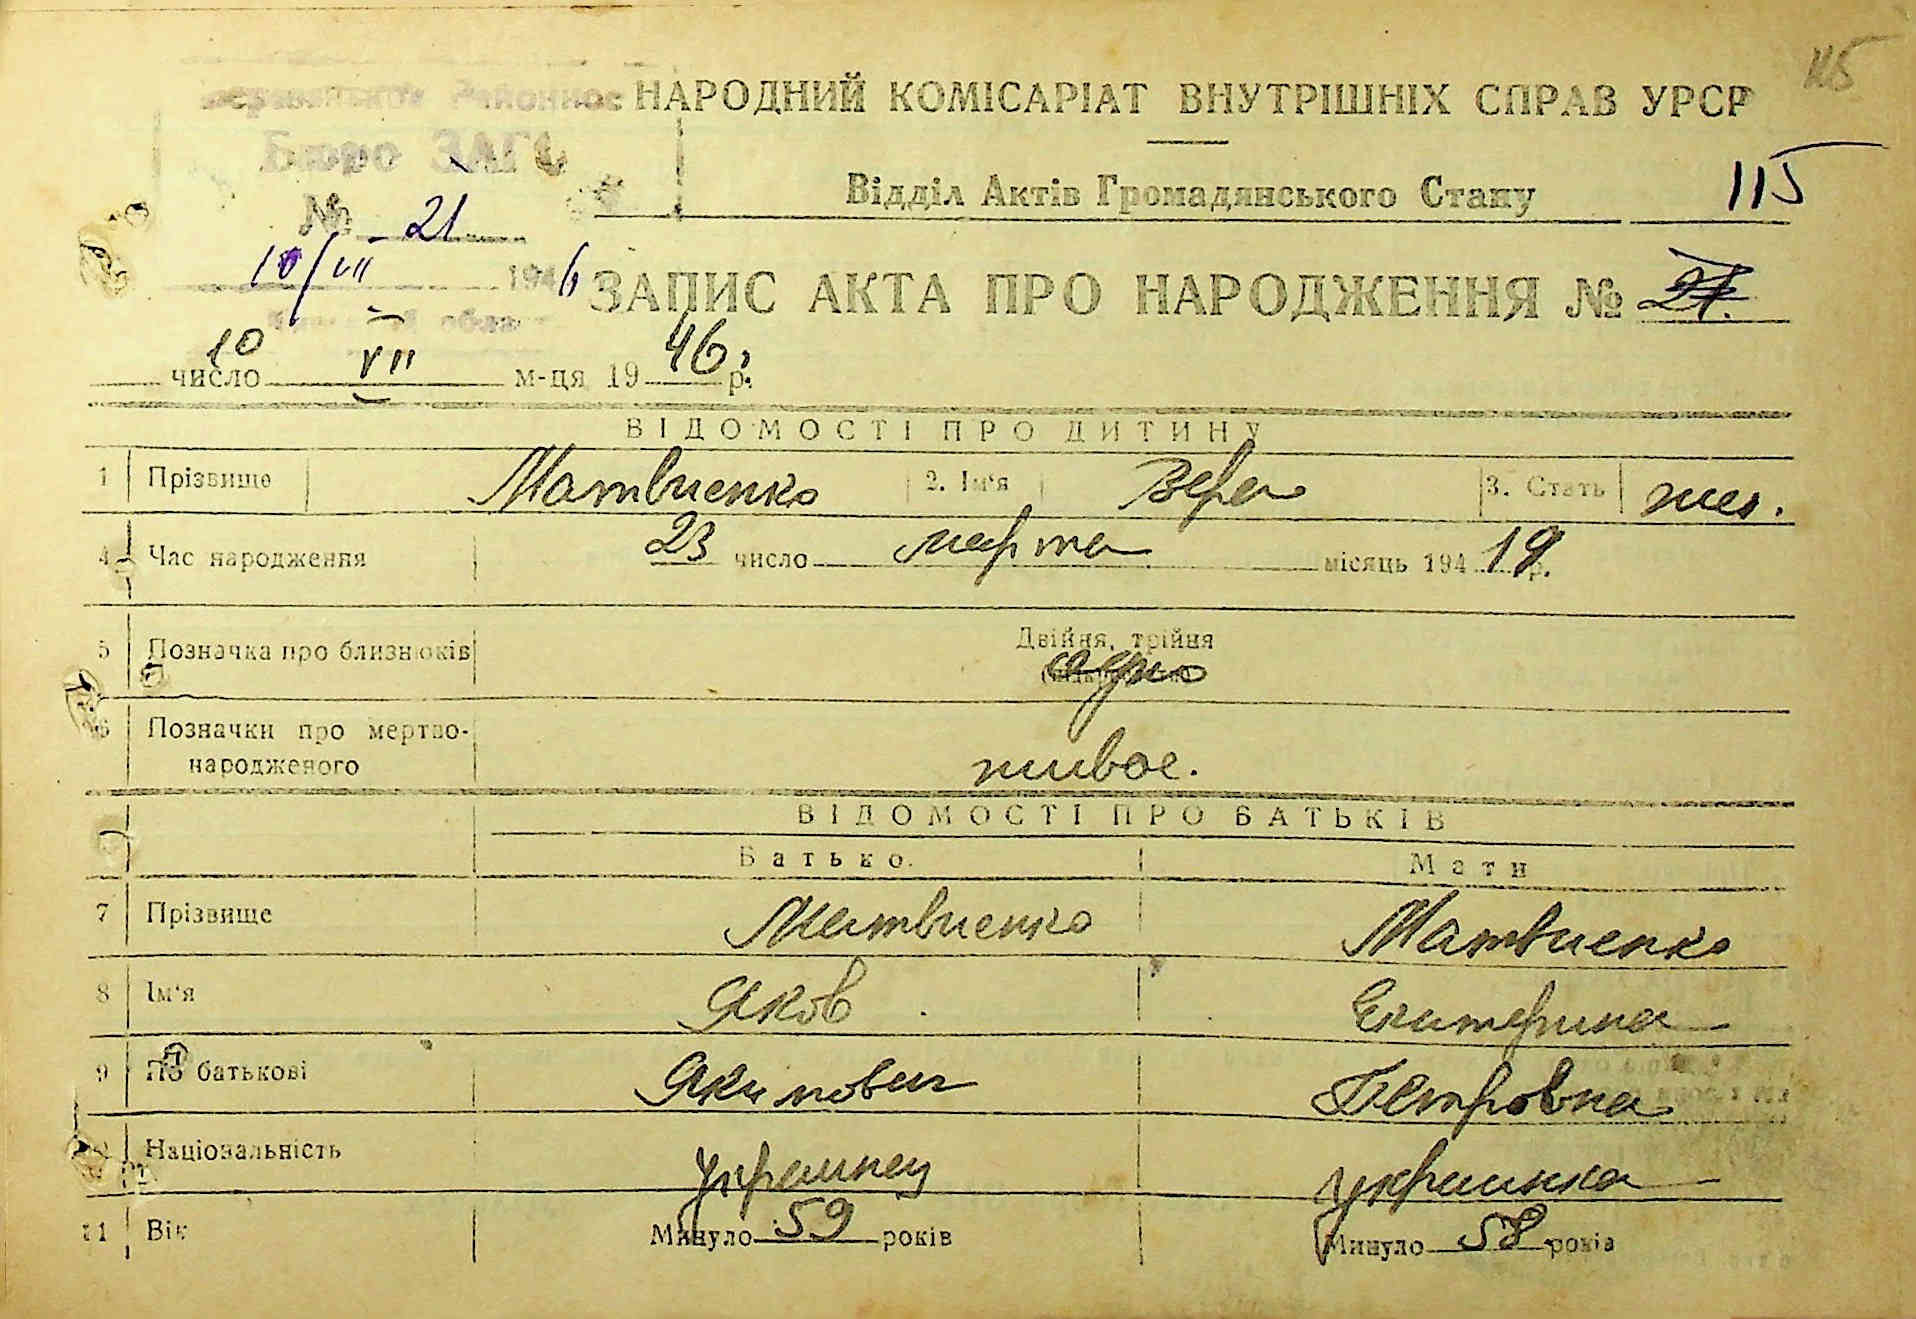 115
Районное НАРОДНИЙ КОМІСАРІАТ ВНУТРІШНІХ СПРАВ УРСР
Бюро ЗАГС
Відділ Актів Громадянського Стану 115
№ 21
10/VII 1946 ЗАПИС АКТА ПРО НАРОДЖЕННЯ № 21.
10 число VII м-ця 1946 р.
ВІДОМОСТІ ПРО ДИТИНУ
1 Прізвище Матвиенко 2. Ім'я Вера 3. Стать жен.
4 Час народження 23 число марта місяць 194 19 р.
5 Позначка про близнюків Двійня, трійня
одно
6 Позначки про мертво-
народженого живое.
ВІДОМОСТІ ПРО БАТЬКІВ
Батько. Мати
7 Прізвище Матвиенко Матвиенко
8 Ім'я Яков Екатерина
9 По батькові Якимович Петровна
Національність украинец украинка
11 Вік Минуло 59 років Минуло 58 років